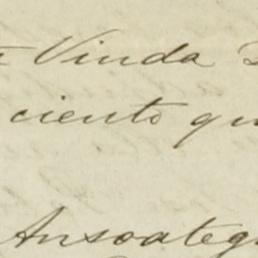 Vinda
ciento qu
Ansoateg